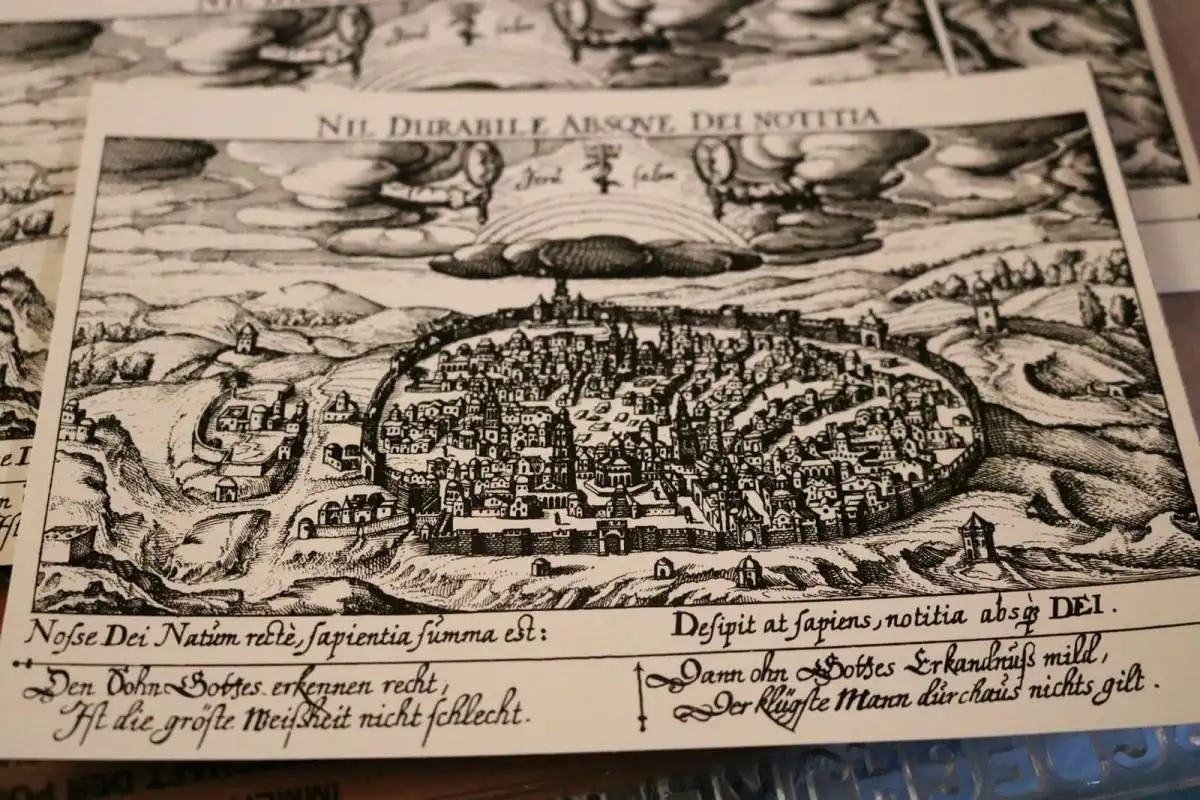 NIL DURABILE ABSQVE DEI NOTITIA
Jeru salem
Nosse Dei Natum rectè, sapientia summa est:
Desipit at sapiens, notitia absq; DEI.
Den Sohn Gottes erkennen recht,
Ist die gröste Weißheit nicht schlecht.
Dann ohn Gottes Erkandnuß mild,
Der klügste Mann durchaus nichts gilt.